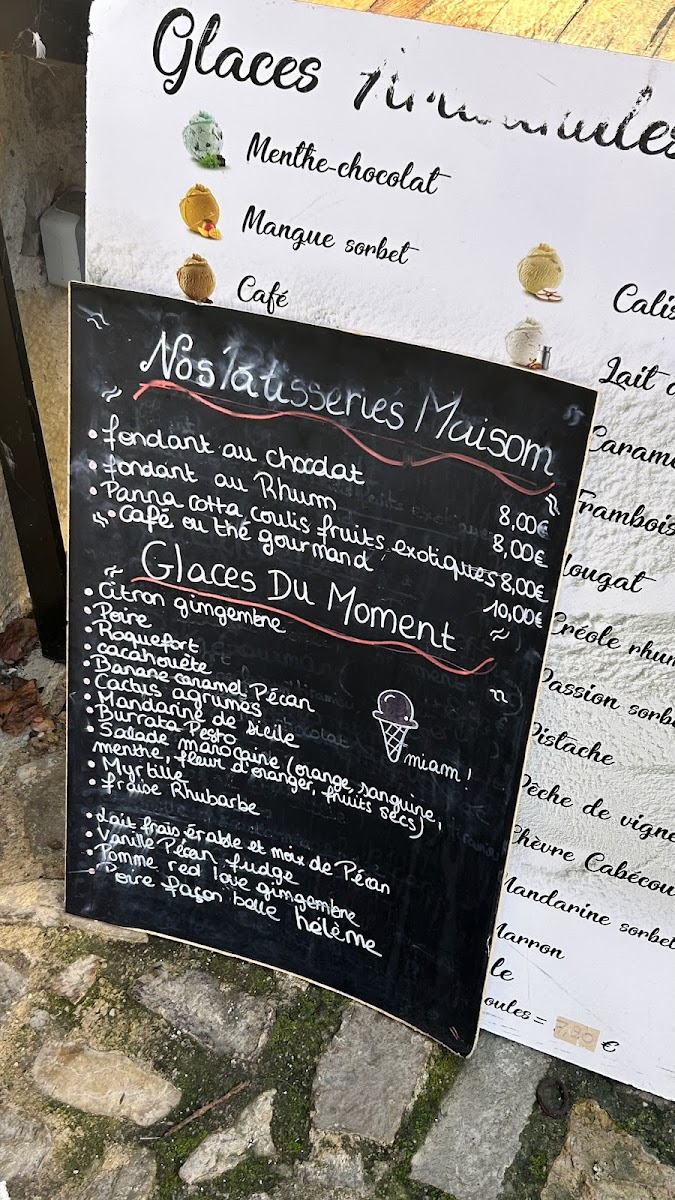 Glaces
Menthe-chocolat
Mangue sorbet
Café
Lait
Nougat
Créole rhum
Passion
Pistache
Pêche de vigne
Chèvre Cabécou
Mandarine sorbet
Marron
le
oules = 7.80 €
Nos Patisseries Maison
• fondant au chocolat 8,00€
• fondant au Rhum 8,00€
• Panna cotta coulis fruits exotiques 8,00€
• Café ou thé gourmand 10,00€
Glaces Du Moment
• Citron gimgembre
• Poire
• Roquefort
• cacahouète
• Banane caramel Pécan
• Cactus agrumes
• Mandarine de sicile
• Burrata Pesto
• Salade marocaine (orange sanguine,
menthe, fleur d'oranger, fruits secs)
• Myrtille
• fraise Rhubarbe
miam !
• Lait frais érable et noix de Pécan
• Vanille Pécan fudge
• Pomme red love gimgembre
• Poire façon belle hélème